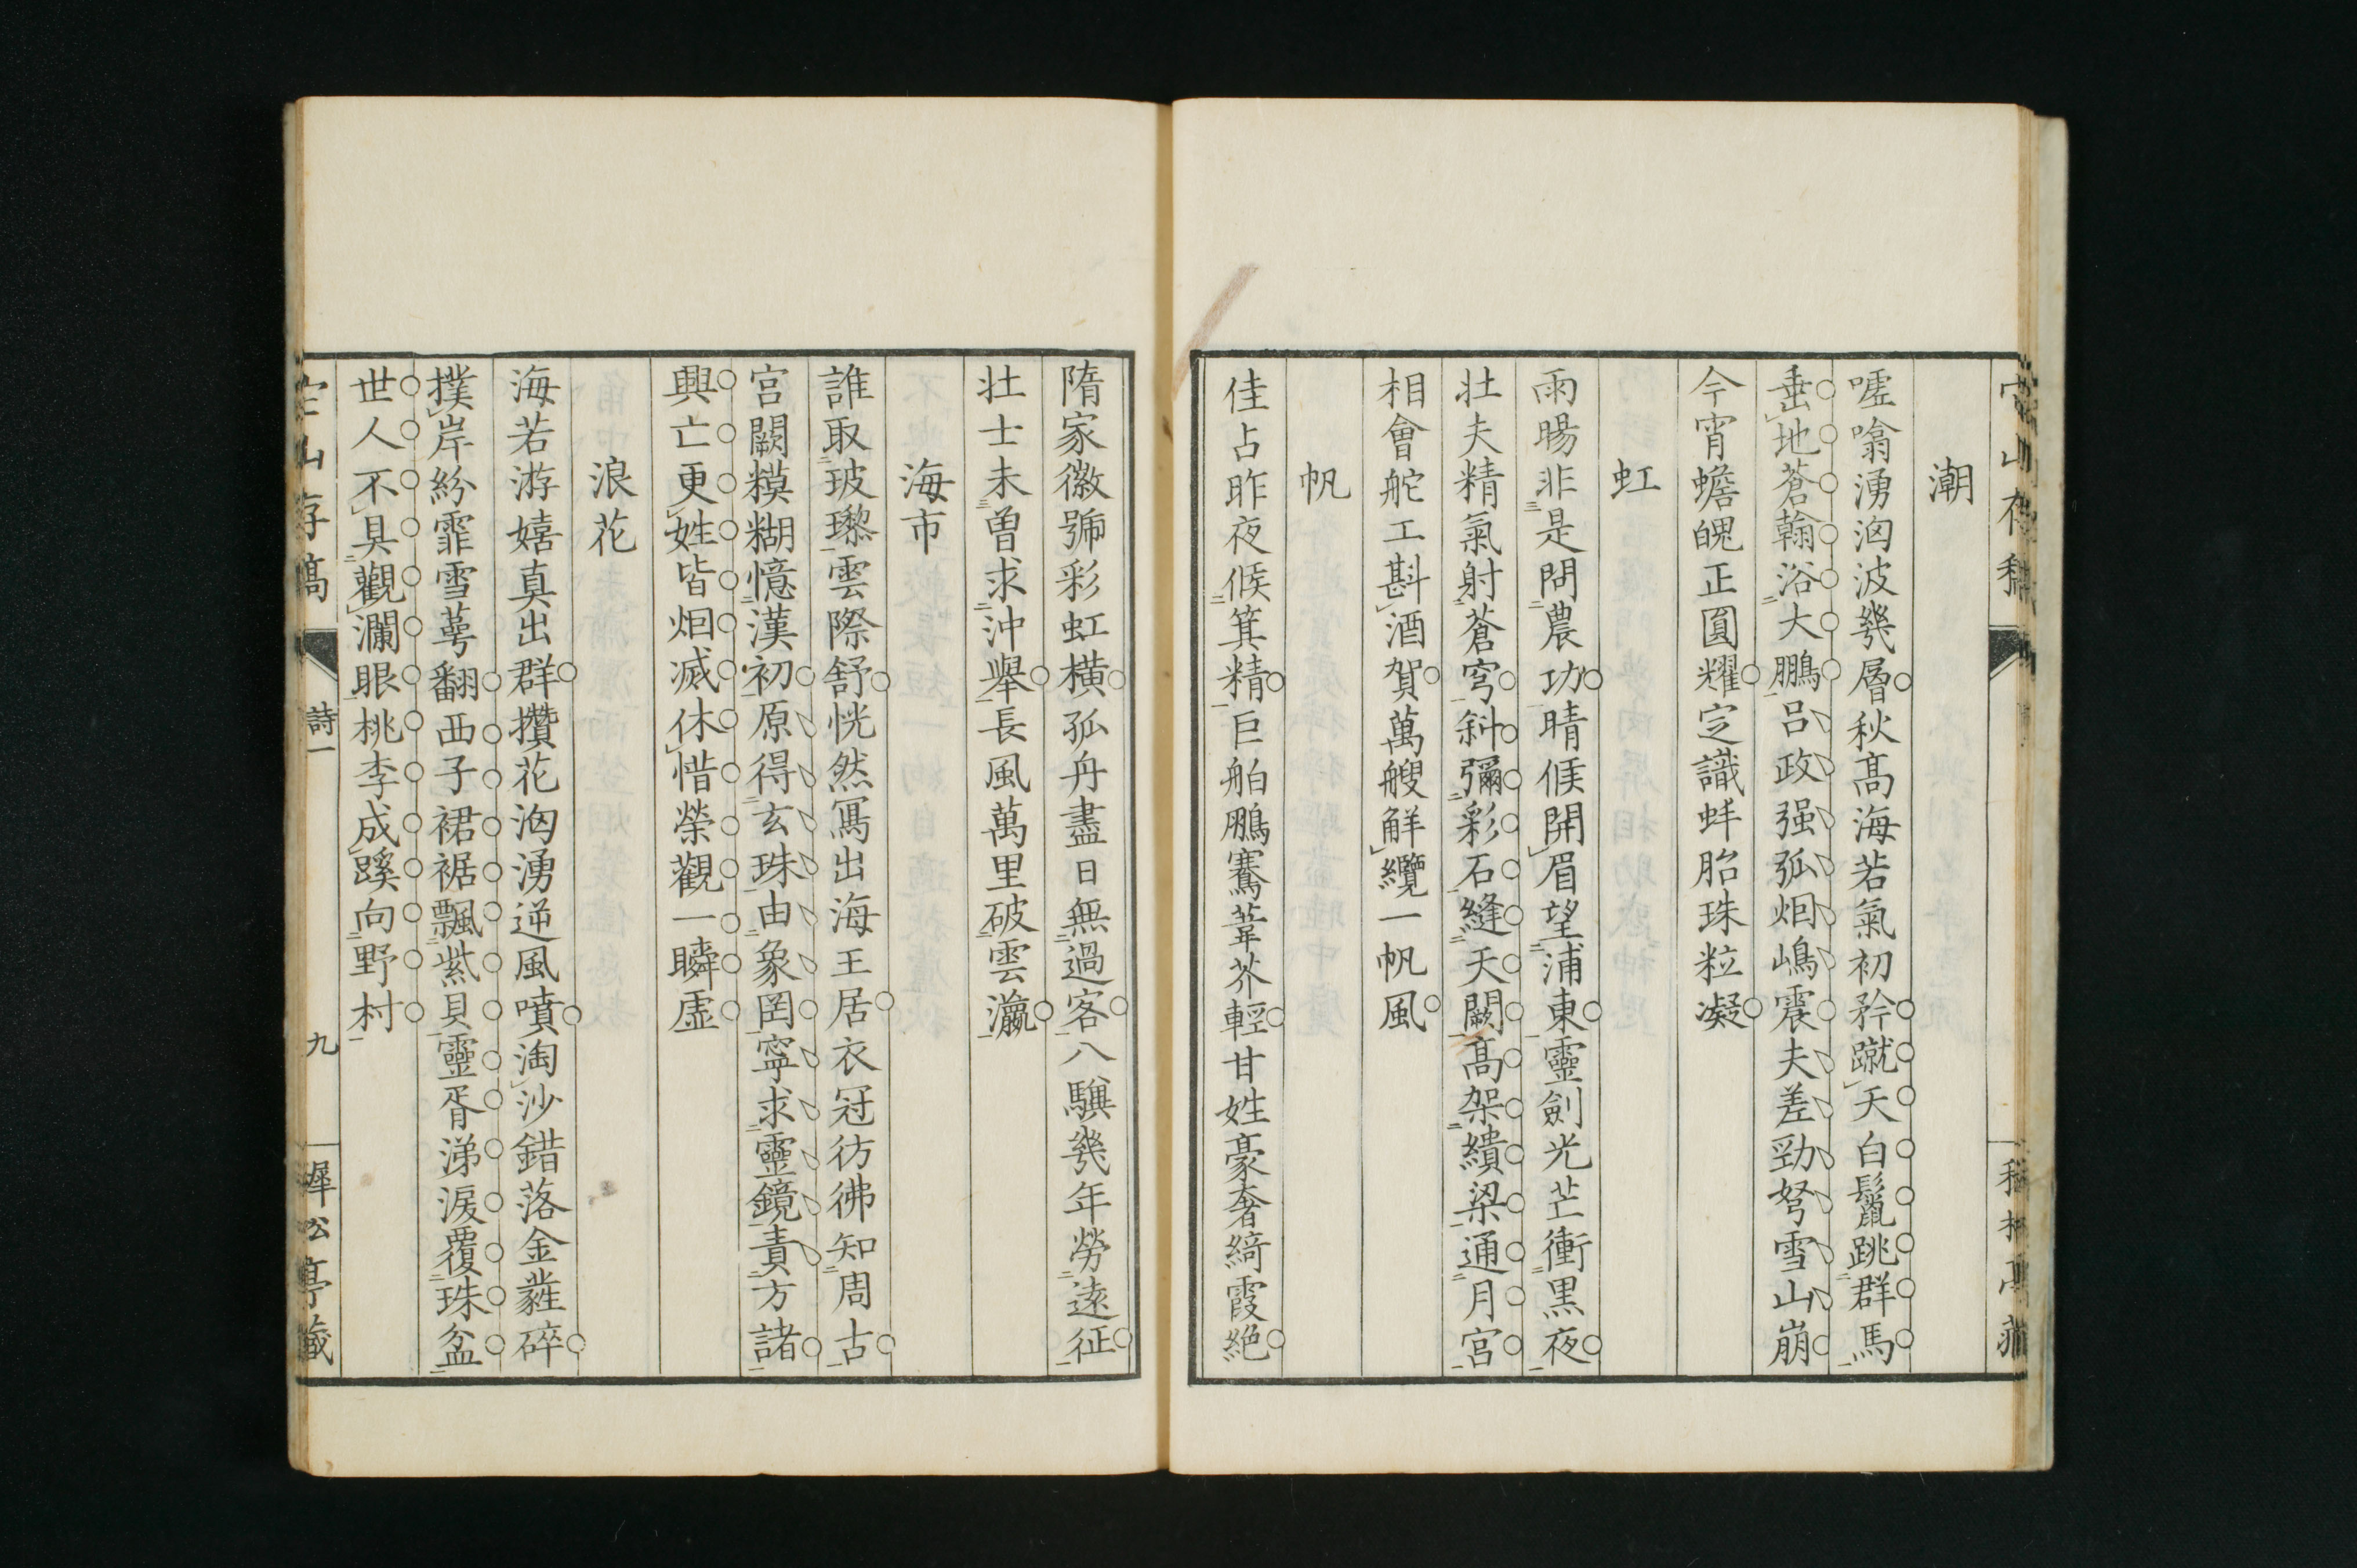 潮
嘘噏湧洶波幾層秋髙海若氣初矜蹴天白鬣跳群馬
垂地蒼翰浴大鵬呂政强弧烟嶋震夫差勁弩雪山崩
今宵蟾魄正圓耀定識蚌胎珠粒凝
虹
雨暘非是問農功晴候開眉望浦東靈劍光芒衝黒夜
壮夫精氣射蒼穹斜彌彩石縫天闕髙架繢梁通月宮
相會舵工斟酒賀萬艘觧纜一帆風
帆
佳占昨夜候箕精巨舶鵬騫葦芥輕甘姓豪奢綺霞絶
隋家徽號彩虹横孤舟盡日無過客八驥幾年勞遠征
壮士未曽求沖舉長風萬里破雲瀛
海市
誰取玻瓈雲際舒恍然冩出海王居衣冠彷彿知周古
宮闕糢糊憶漢初原得玄珠由象罔寧求靈鏡責方諸
興亡更姓皆烟滅休惜榮觀一瞬虛
浪花
海若游嬉真出群攢花洶湧逆風噴淘沙錯落金蕤碎
撲岸紛霏雪萼翻西子裙裾飄紫貝靈胥涕淚覆珠盆
世人不具觀瀾眼桃李成蹊向野村
詩一
九